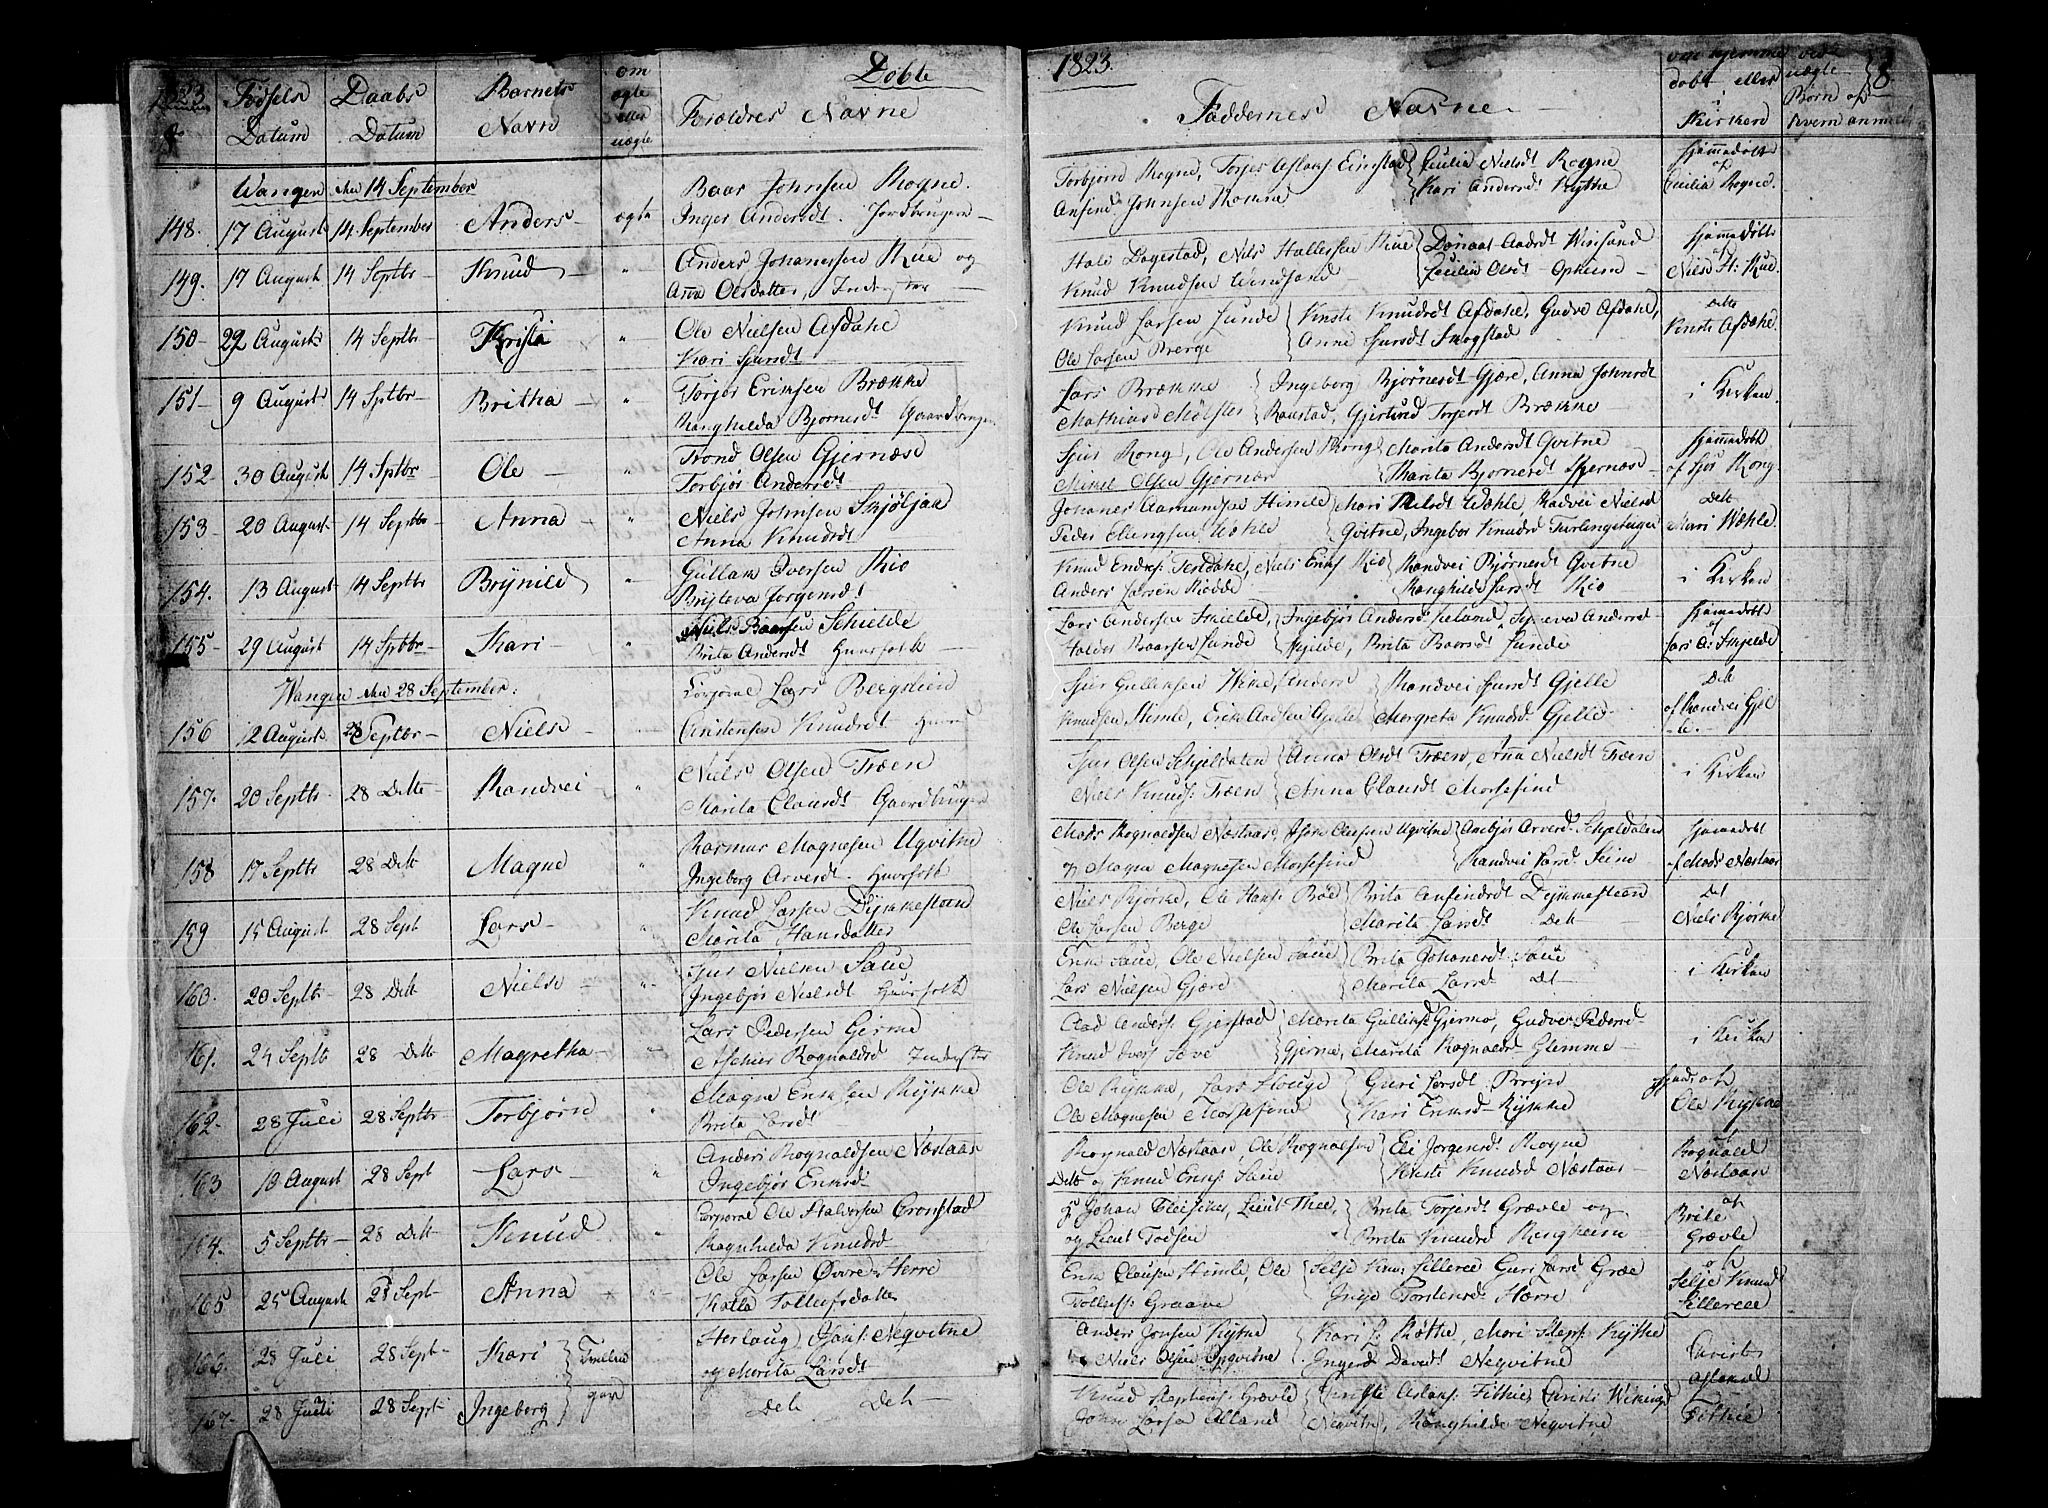 1823
Døbte
Fødsels Datum
Daabs Datum
Barnets Navn
om ægte eller uægte
Forældres Navne
1823.
Faddernes Navne
om hjemmedøbt eller i Kirken
ved uægte Børn af hvem anmeldt
8
Wangen den 14 September
148. 17 August 14 September Anders ægte
Baar Johnsen Rogne.
Inger Andersdt. Jordbruger
Torbjørn Rogne, Torjer Aslaks Einstad
Anfind Johnsen Rokne
Cecilia Nielsdt Rogne
Kari Andersdt Kythe
hjemmedøbt af Cecilia Rogne.
149. 17 August 14 Septbr Knud "
Anders Johanessen Rue og
Anna Olsdatter, Inderster
Hale Dagestad, Nils Hallessen Rue
Knud Knudsen Windsand
Zecilia Olsdt Opheim
hjemedøbt Niels H: Rue.
150 22 August 14 Septbr Kristi "
Ole Nielsen Afdahl
Kari Sjursdt
Knud Larsen Lunde
Ole Larsen Berge
Kinste Knudsdt Afdahl, Gudve Afdahl,
Anne Sjursdt Skogstad
Dette Kinste Afdahl.
151 9 August 14 Sptbr Britha "
Torjer Eriksen Brække
Ranghilda Bjornesdt Gaardbruger
Lars Brække
Mathias Mølster
Ingeborg Bjørnesdt Gjære, Anna Johnsdt
Ronstad, Gjertrud Torjersdt Brække
i Kirken
152 30 August 14 Sptbr Ole "
Trond Olsen Gjernæs
Torbjør Andersdt
Sjur Rong, Ole Andersen Rong
Mikel Olsen Gjernæs
Marita Andersdt Gvitne
Marita Bjornesdt Gjernæs
hjemmedøbt af Sjur Rong
153 20 August 14 Septbr Anna "
Niels Johnsen Skjøljan
Anna Knudsdt
Johanes Aamundsen Himle
Peder Ellingsen Wæhle
Mari Nielsdt Wæhle, Randvei Nielsdt
Gvitne, Ingebor Knudsd
Dett Mari Wæhle.
154. 13 August 14 Septbr Brynild "
Gullak Iversen Rio
Brytteva Jorgensdt
Knud Endres: Tesdahl, Niels Eriks Rio
Anders Larsen Rødde
Randvei Bjørnesdt Gvitne
Ranghild Larsdt Rio
i Kirken
155 29 August 14 Sptbr Kari "
Niels Baarsen Schielde
Brita Andersdt Huusfolk
Lars Andersen Skielde,
Haldor Baarsen Lunde
Ingebjør Andersd: Lieland, Synneva Andersd
Skjelde, Brita Baarsdt Lunde
hjemedøbt af Lars A: Skjelde
Wangen den 28 September.
156 12 August 28 Septbr Niels "
Corporal Lars Bergslien
Christense Knudsdt Huusf
Sjur Gulliksen Wike, Anders
Knudsen Himle, Erik Aadsen Gjelle
Randvei Sjursdt Gjelle
Margreta Knudsd Gjelle
Dett af Randvei Gjelle.
157. 20 Septbr 28 Dette Randvei "
Niels Olsen Træen
Marita Clausdt Gaardbruger
Sjur Olsen Schjeldalen
Niels Knuds: Træen
Anna Olsdt Træen, Ana Nielsdt Træen
Anna Clausdt Mossefind
i Kirken
158 17 Septbr 28 Dett Magne "
Rasmus Magnesen Ugvitne
Ingeborg Arvesdt. Huusfolk
Mads Rognaldsen Næstaas, Ugvitne
og Magne Magnesen Mossefind
Anebjør Arvesd: Schjeldalen
Randvei Larsd: Seim
hjemedøbt af Mads Næstaas
159 15 August 28 Sept Lars "
Knud Larsen Dymmesteen
Marita Hansdatter
Niels Bjørke, Ole Hans: Bøe
Ole Larsen Berge
Brita Anfindsdt Dymmesteen
Marita Larsdt Dett
Det Niels Bjørke
160. 20 Septbr 28 Dett Niels "
Sjur Nielsen Saue
Ingebjør Nielsdt Huusfolk
Erik Saue, Ole Nielsen Saue
Lars Nielsen Gjære
Brita Johanesdt Saue
Marita Larsdt Dt
i Kirken
161. 24 Septbr 28 Dett Magretha "
Lars Pedersen Gierme
Rognaldsd Inderster
Aad Anders: Gjerstad
Knud Ivers Sæve
Marita Gulliksd Gjermo, Gudver Pedersd
Gjerme, Marita Rognaldsd Glimme
i Kirken
162. 28 Juli 28 Septbr Torbjørn "
Magne Eriksen Rykke
Brita Larsdt
Ole Rykke, Lars Houge
Ole Magnesen Mossefind
Guri Larsdt
Kari Eriksd Rykke
hjemd: af Ole Rykke
163 10 August 28 Sept Lars "
Anders Rognaldsen Næstaas
Ingebjør Eriksd
Rognald Næstaas, Ole Rognaldsen
Dett og Knud Eriks: Saue
Eli Jorgensdt Rogne
Kinste Knudsd Næstaas
af Rognald Næstaas
164. 5 Septbr 28 Dett Knud "
Corporal Ole Halvorsen Gronstad
Rognhilda Knudsd
Johan Fleischer, Lieut Thee,
og Lieut Todsen
Brita Torjersdt Grævle og
Brita Knudsd Ringheim
af Brite Grævle
165 25 August 28 Sept Anna "
Ole Larsen Øvre Herre
Katla Tollefsdatter
Erik Clausen Himle, Ole
Tollefs: Graave
Selje Knuds Lilleree Guri Larsd Græe
Inge Torstensd: Hærre
af Selje Knuds Lilleree
166. 28 Juli 28 Sept Kari Tvillinger
Herlaug Negvitne
og Marita Larsdt
Anders Jonsen Kytne
Niels Olsen Ungvitne
Kari L: Røthe, Mari Steps: Kythe
Ingerd Davidt Negvitne
167. 28 Juli 28 Sept Ingeborg
Dett Dett
Knud Stephens: Grævle
John Larsen Alland
Christie Aslaks: Fithie, Christi Wikingsd
Negvitne, Ranghilde Negvitne
Christie Aslaksd Fithie